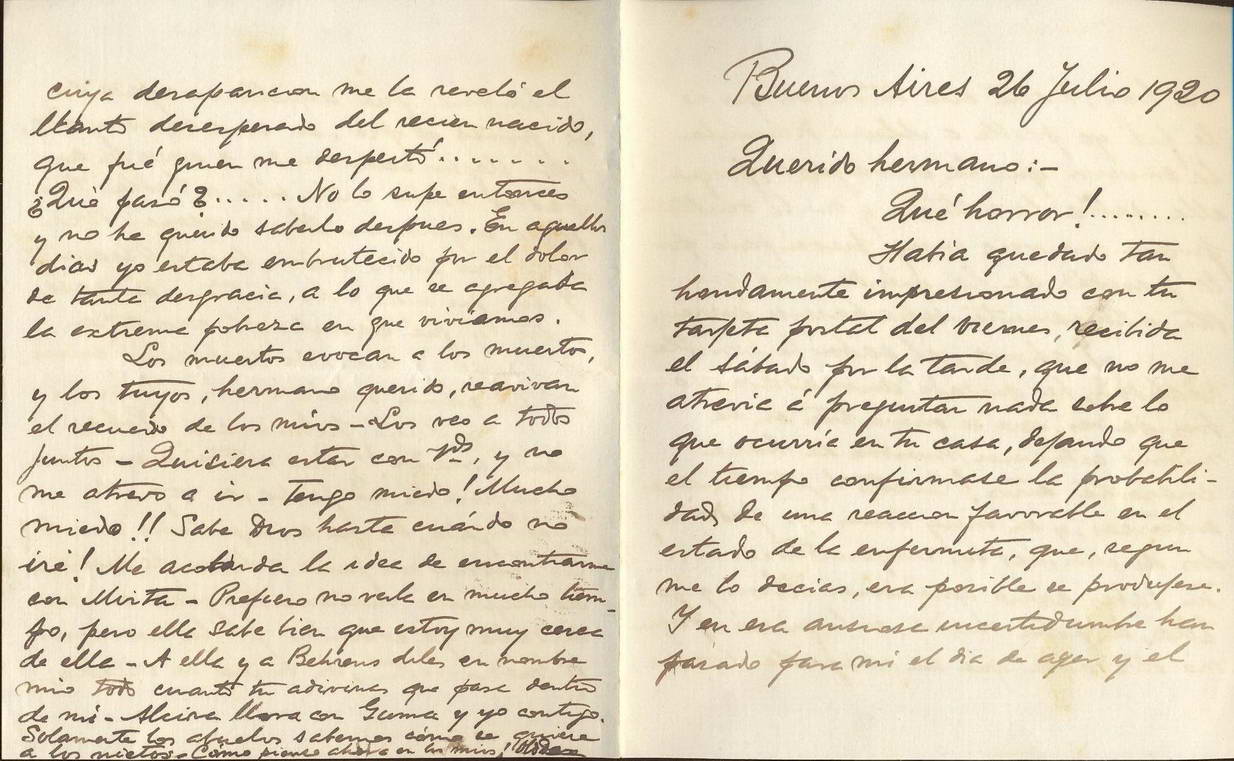 Buenos Aires 26 Julio 1920
Querido hermano:-
Qué horror!........
Habia quedado tan
hondamente impresionado con tu
tarjeta postal del viernes, recibida
el sábado por la tarde, que no me
atrevia á preguntar nada sobre lo
que ocurría en tu casa, dejando que
el tiempo confirmase la probabili-
dad, de una reaccion favorable en el
estado de la enfermita, que, segun
me lo decias, era posible se produjese.
Y en esa ansiosa incertidumbre han
pasado para mi el dia de ayer y el
cuya desaparicion me la reveló el
llanto desesperado del recien nacido,
que fué quien me despertó.......
¿Qué pasó?..... No lo supe entonces
y no he querido saberlo despues. En aquellos
dias yo estaba embrutecido por el dolor
de tanta desgracia, a lo que se agregaba
la extrema pobreza en que vivíamos.
Los muertos evocan a los muertos,
y los tuyos, hermano querido, reavivan
el recuerdo de los mios - Los veo a todos
juntos - Quisiera estar con Vds, y no
me atrevo a ir - Tengo miedo! Mucho
miedo!! Sabe Dios hasta cuándo no
iré! Me acobarda la idea de encontrarme
con Mirta - Prefiero no verla en mucho tiem-
po, pero ella sabe bien que estoy muy cerca
de ella - A ella y a Behrens diles en nombre
mio todo cuanto tu adivinas que pasa dentro
de mi - Alcira llora con Guma y yo contigo.
Solamente los abuelos sabemos cómo se quiere
a los nietos - Cómo pienso ahora en los mios!